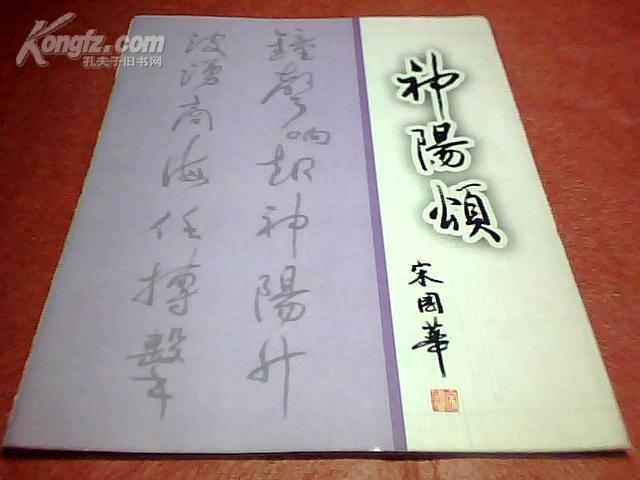 Kongfz.com
孔夫子旧书网
神陽頌
宋國華
鐘聲响起神陽升
波湧商海任搏擊